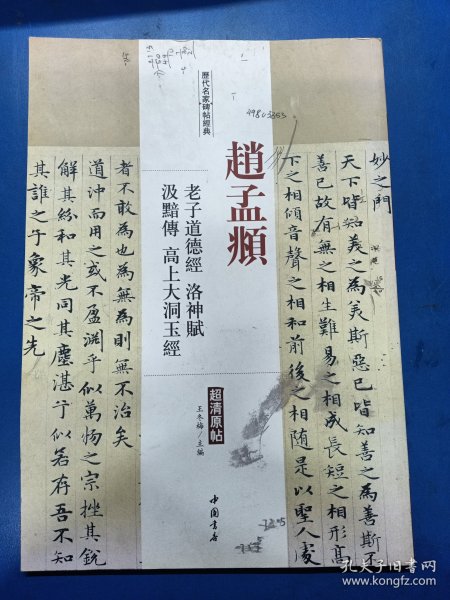 歷代名家碑帖經典
趙孟頫
老子道德經 洛神賦
汲黯傳 高上大洞玉經
超清原帖
王冬梅／主編
中国书店
妙之門
天下皆知美之為美斯惡已皆知善之為善斯不
善已故有無之相生難易之相成長短之相形高
下之相傾音聲之相和前後之相隨是以聖人處
者不敢為也為無為則無不治矣
道沖而用之或不盈淵乎似萬物之宗挫其銳
解其紛和其光同其塵湛乎似若存吾不知
其誰之子象帝之先
孔夫子旧书网
book.kongfz.com